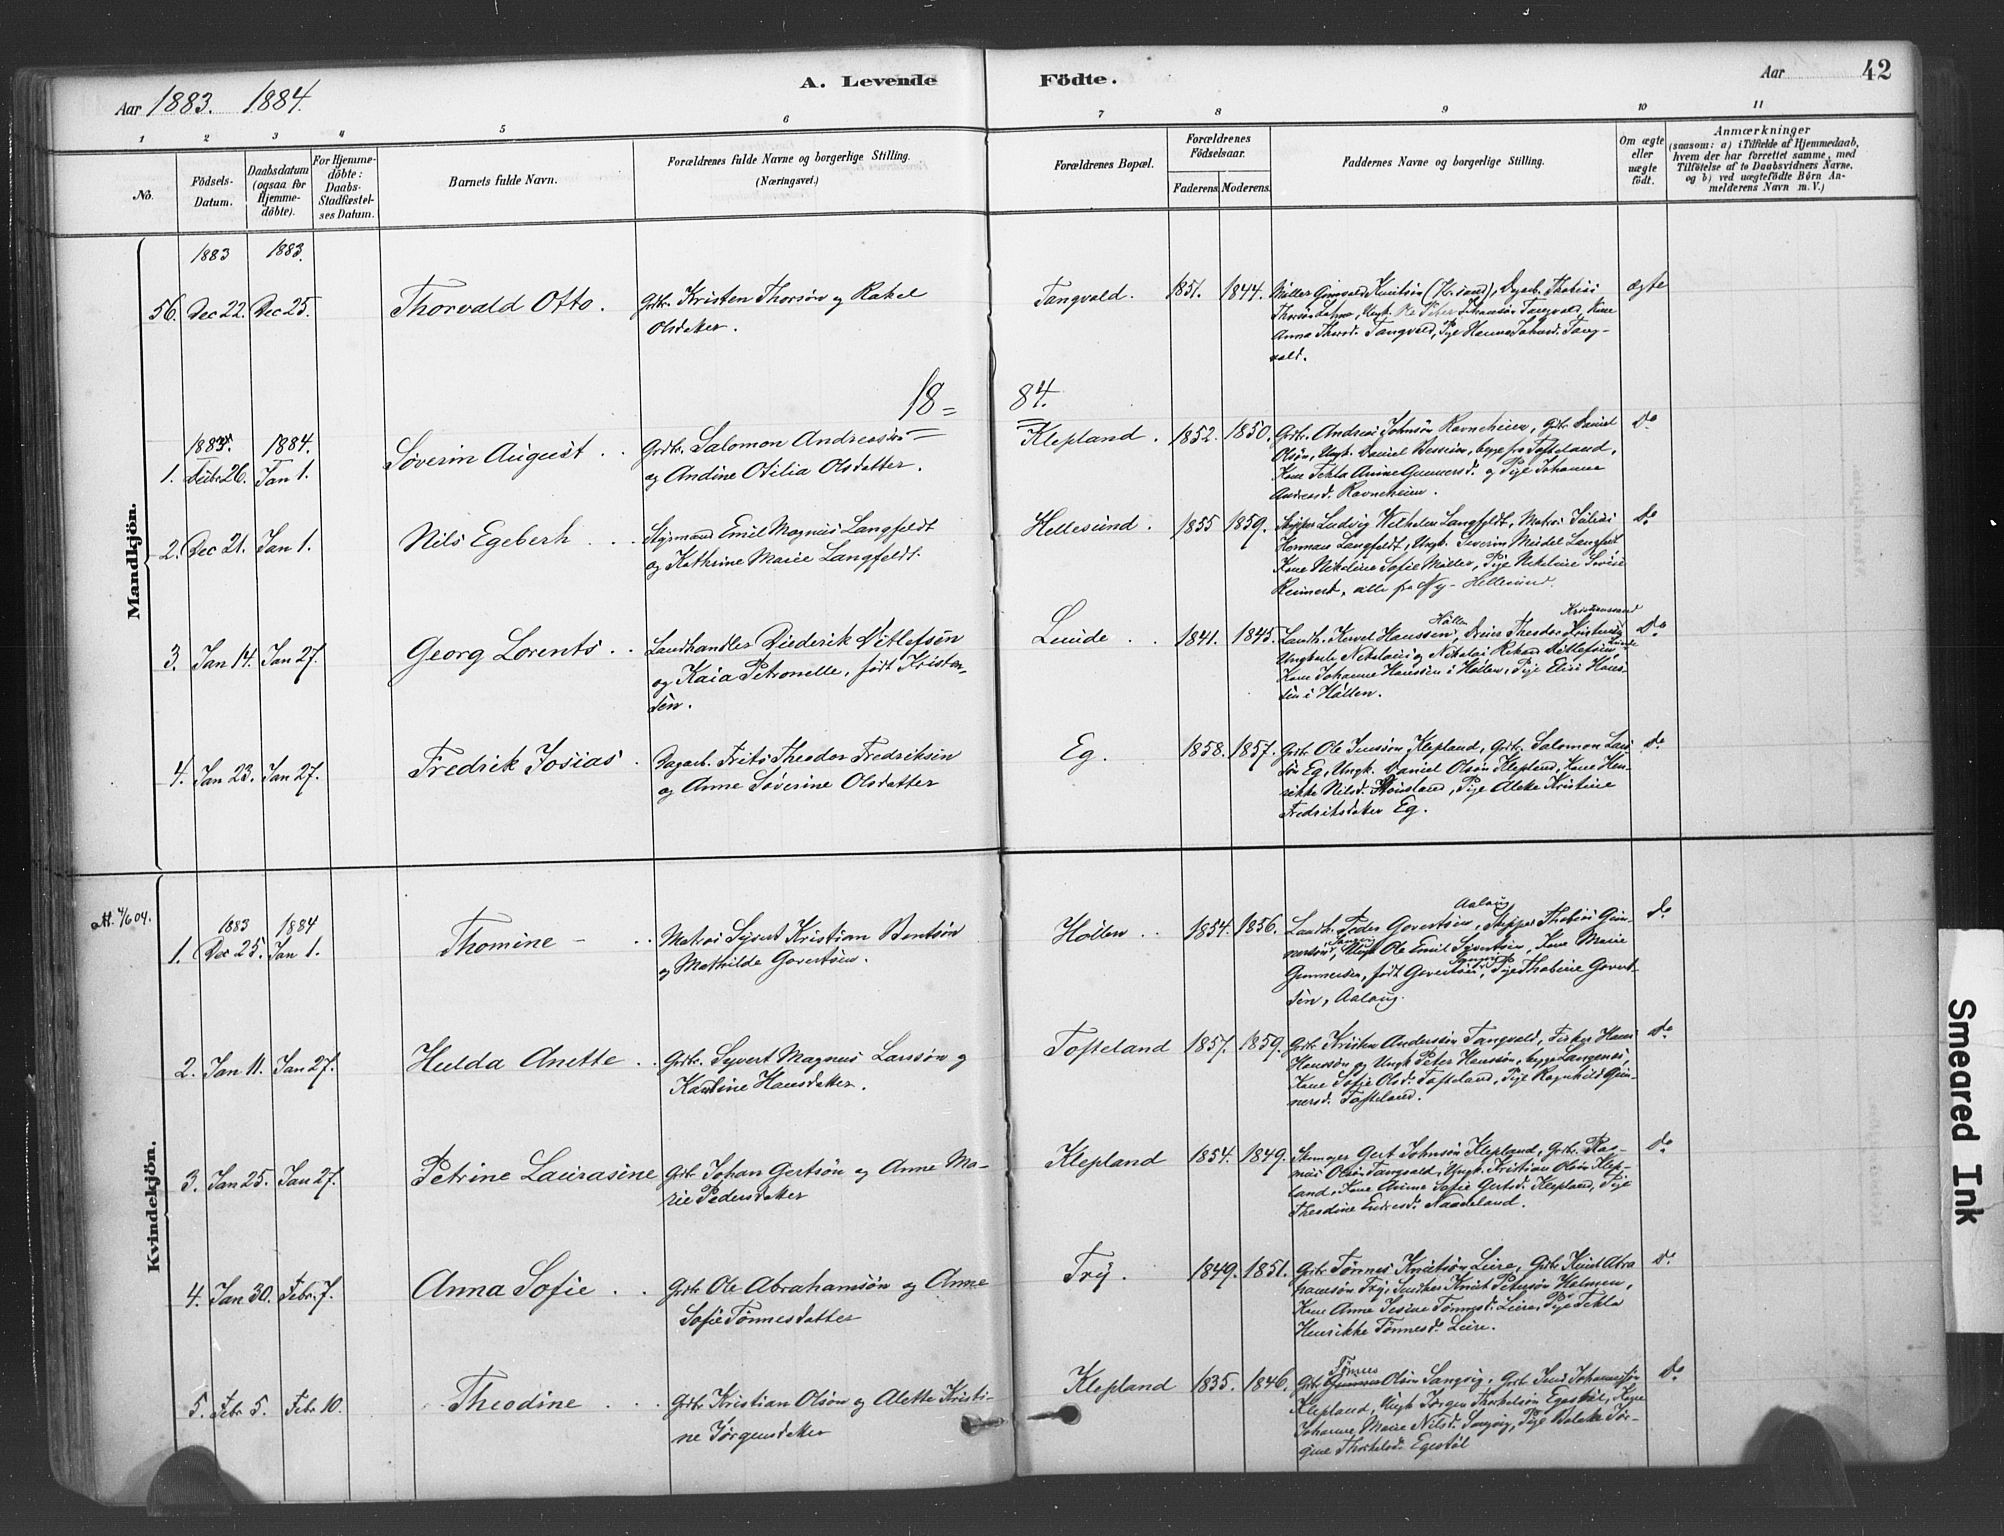 Aar 1883. 1884.
A. Levende Födte.
Aar 42
1 2 3 4 5 6 7 8 9 10 11
No.
Födsels-Datum.
Daabsdatum (ogsaa for Hjemmedöbte).
For Hjemmedöbte: Daabs-Stadfæstelses Datum.
Barnets fulde Navn.
Forældrenes fulde Navne og borgerlige Stilling. (Næringsvei.)
Forældrenes Bopæl.
Forældrenes Födselsaar.
Faderens. Moderens.
Faddernes Navne og borgerlige Stilling.
Om ægte eller uægte födt.
Anmærkninger (saasom: a) i Tilfælde af Hjemmedaab, hvem der har forrettet samme, med Tilföielse af to Daabsvidners Navne, og b) ved uægtefödte Børn Anmelderens Navn m. V.)
Mandkjön.
1883 1883.
56. Dec 22. Dec 25. Thorvald Otto. Grdbr. Kristen Thorsön og Rakel
Olsdatter.
Tangvald. 1851. 1844.
Anna Thorsd. Tangvald, Pige Hanna Johansd. Tang-
vald.
ægte
18= 84.
1883. 1884.
1. Decbr 26. Jan 1. Söverin August . . Grdbr. Salomon Andreassön
og Andine Otilia Olsdatter.
Klepland. 1852. 1850. Grdbr. Andreas Johnsön Ravneheien, Grdbr. Daniel
Olsön, Ungk. Daniel , begge fra Tofteland,
Kone Tekla Anine Gunnersd. og Pige Johanne
Andreasd. Ravneheien.
do
2. Dec 21. Jan 1. Nils Egeberh . . Styrmand Emil Magnus Langfeldt
og Kathrine Marie Langfeldt.
Hellesund. 1855 1859. Skipper Ludvig Wilhelm Langfeldt, Matros Julius
Herman Langfeldt, Ungk. Severin Langfeldt
Kone Nikoline Sofie Möller, Pige Nikoline
Reimert, alle fra Ny-Hellesund.
do
3. Jan 14. Jan 27. Georg Lorents . . Landhandler Diederik Ditlefsen
og Kaia Petronelle, født Kristen-
sen.
Lunde . . 1841. 1845. Hansen, Höllen Theodor Kristiansand
Ungkarle Nikolaus og Nikolai Rikard Ditlefsen, Lunde
Kone Johanne Hanssen i Höllen, Pige Elise Hans-
sen i Höllen.
do
4. Jan 23. Jan 27. Fredrik Josias . Dagarb. Frits Theodor Fredriksen
og Anne Söverine Olsdatter
Eg. 1858. 1857. Grdbr. Ole Jenssön Klepland, Grdbr. Salomon Lars-
sön Eg, Ungk. Daniel Olsön Klepland, Kone Hen-
rikke Nilsd. , Pige Aleke Kristine
Fredriksdatter Eg.
do
Kvindekjön.
Att. 4/6 04.
1883 1884
1. Dec 25. Jan 1. Thomine – . . Matros Syvert Kristian Bentsön
og Mathilde Govertsen.
Höllen . . 1854. 1856. Landh. Peder Govertsen, Aaløug Skipper Thobias Gun-
nersön, Ungk Ole Emil Syvertsen, Kone Marie
Gunnersen, født Govertsen, Pige Thobine Govert-
sen, Aaløug.
do
2. Jan 11. Jan 27. Hulda Anette . . Grdbr. Syvert Magnus Larssön og
Karoline Hansdatter.
Tofteland 1857. 1859. Grdbr. Kristen Anderssön Tangvald, Fisker Hans
Hanssön og Ungk Peter Hanssön, begge Langenes,
Kone Sofie Olsd. Tofteland, Pige Ragnhild Gun-
nersd. Tofteland.
do
3. Jan 25. Jan 27. Petrine Laurasine Grdbr. Johan Gertsön og Anne Ma-
rie Pedersdatter
Klepland 1854. 1849. Gert Johnsön Klepland, Grdbr. Ras-
mus Olsön Tangvald, Ungk. Kristian Olsön Klep-
land, Kone Anne Sofie Gertsd. Klepland, Pige
Theodine Endresd. Naadeland.
do
4. Jan 30. Febr. 7. Anna Sofie . . Grdbr Ole Abrahamsön og Anne
Sofie Tönnesdatter
Try. 1849. 1851. Grdbr Tönnes Knutsön Leire, Grdbr Knut Abra
hamsön Try, Snedker Knut Petersön Holmen,
Kone Anne Tönnesd. Leire, Pige Tekla
Henrikke Tönnesd. Leire.
do
5. Febr 5. Febr 10. Theodine . . Grdbr Kristian Olsön og Alette Kristi-
ne Jörgensdatter
Klepland 1835. 1846. Grdbr Tönnes Olsön Sangvig, Grdbr Jens Johannessön
Klepland, Ungk Jörgen Thorkelsön Egestöl, Kone
Johanne Marie Nilsd. Sangvig, Pige Jör-
gine Thorkelsd. Egestöl
do
Smeared Ink